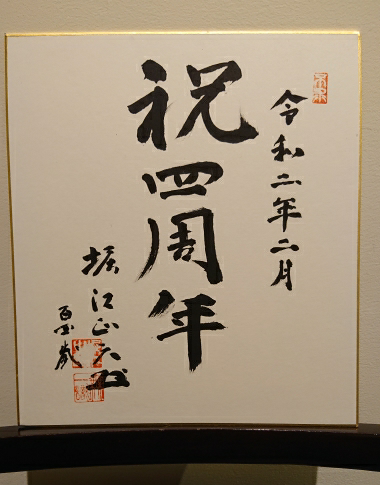 令和二年二月
祝四周年
堀江正夫
百四歳